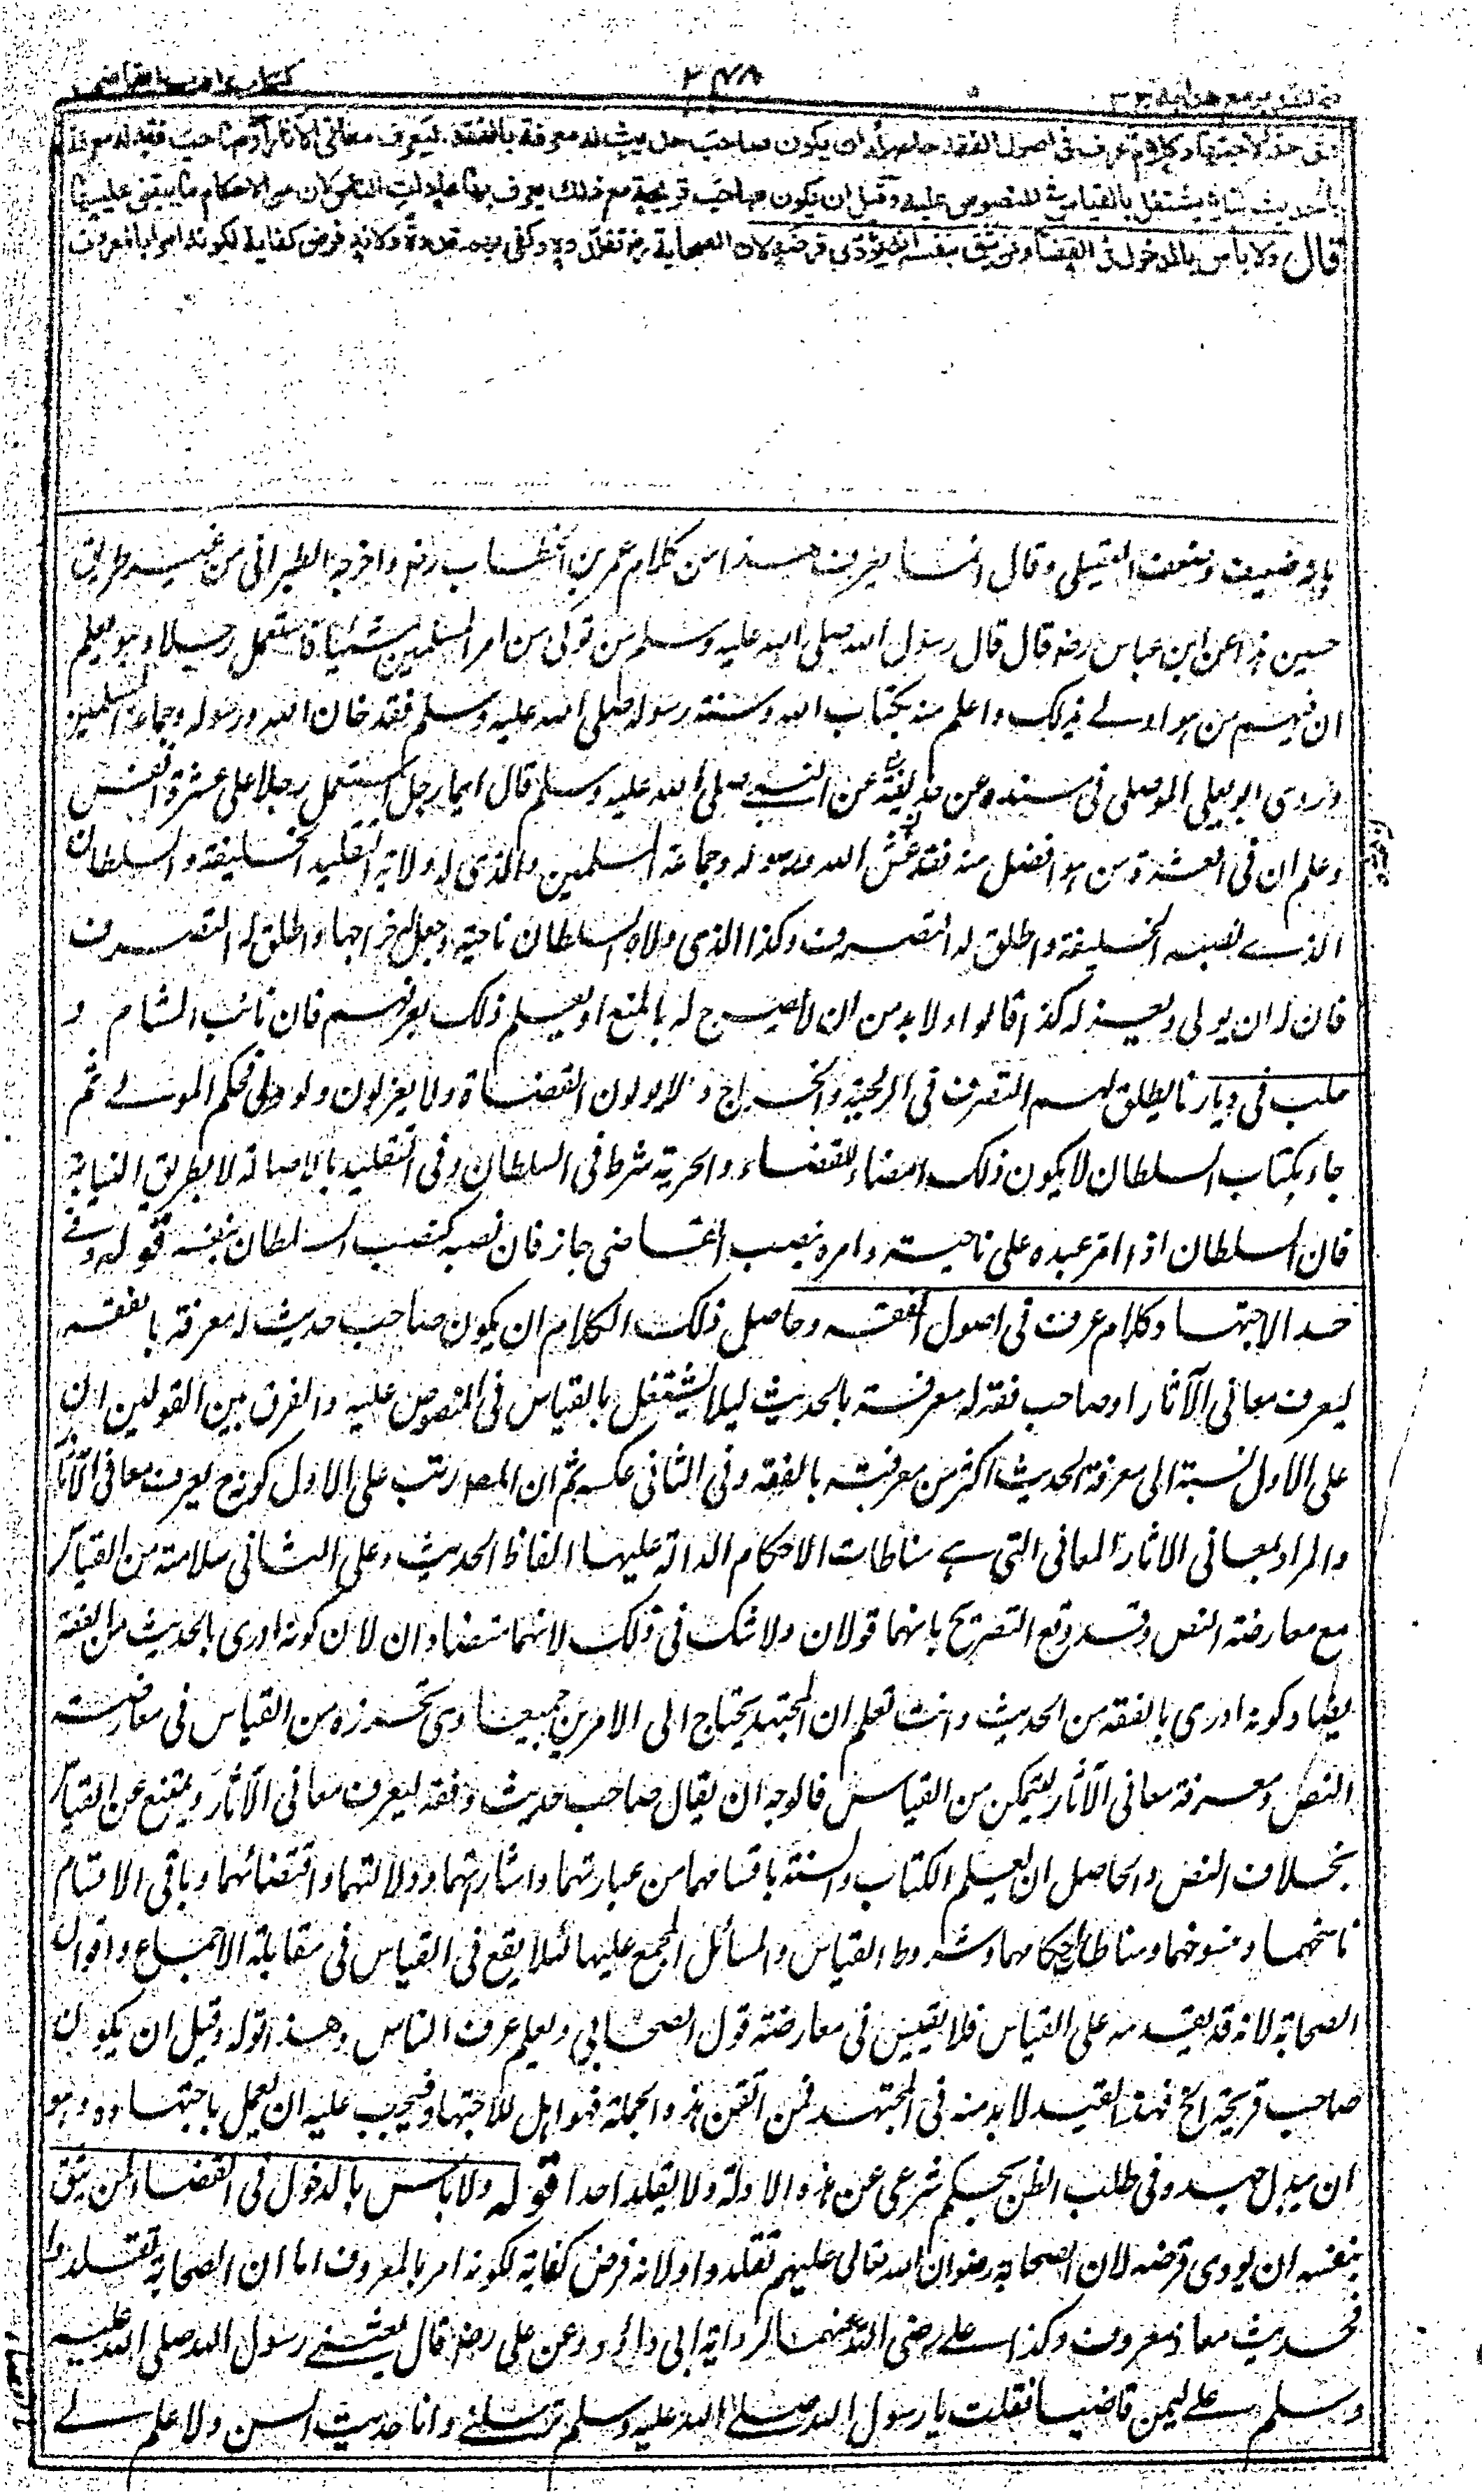 كتاب ادب القاضى
٣٤٨
فتح القدير مع هداية ج٣
وفى حد الاجتهاد كلام عرف فى اصول الفقه وحاصله أن يكون صاحب حديث له معرفة بالفقه ليعرف معانى الآثار أو صاحب فقه له معرفة
بالحديث لئلا يشتغل بالقياس فى المنصوص عليه وقيل ان يكون صاحب قريحة مع ذلك يعرف بها عادات الناس لان من الاحكام ما يبتنى عليها
قال ولا باس بالدخول فى القضاء لمن يثق بنفسه ان يؤدى فرضه لان الصحابة رض تقلدوه وكفى بهم قدوة ولانه فرض كفاية لكونه امرا بالمعروف
بانه ضعيف وضعفه العقيلى وقال انما يعرف هذا من كلام عمر بن الخطاب رضه واخرجه الطبرانى من غير طريق
حسين هذا عن ابن عباس رضه قال قال رسول الله صلى الله عليه وسلم من تولى من امر المسلمين شيئا فاستعمل رجلا وهو يعلم
ان فيهم من هو اولے بذلك واعلم منه بكتاب الله وسنة رسوله صلى الله عليه وسلم فقد خان الله ورسوله وجماعة المسلمين
وروى ابو يعلى الموصلى فى مسنده عن حذيفة عن النبے صلى الله عليه وسلم قال ايما رجل استعمل رجلا على عشرة انفس
وعلم ان فى العشرة من هو افضل منه فقد غش الله ورسوله وجماعة المسلمين والذى له ولاية التقليد الخليفة والسلطان
الذے نصبه الخليفة واطلق له التصرف وكذا الذى ولاه السلطان ناحية وجعل له خراجها واطلق له التصرف
فان له ان يولى ويعزل كذا قالوا ولا بد من ان لا يصرح له بالمنع او يعلم ذلك بعرفهم فان نائب الشام و
حلب فى ديارنا يطلق لهم التصرف فى الرعية والخراج ولا يولون القضاة ولا يعزلون ولو ولى فحكم المولے ثم
جاء بكتاب السلطان لا يكون ذلك امضاء للقضاء والحرية شرط فى السلطان وفى التقليد بالاصالة لا بطريق النيابة
فان السلطان اذا امر عبده على ناحية وامره بنصب القاضى جاز فان نصبه كنصب السلطان بنفسه قوله وفے
حد الاجتهاد كلام عرف فى اصول الفقه وحاصل ذلك الكلام ان يكون صاحب حديث له معرفة بالفقه
ليعرف معانى الآثار او صاحب فقه له معرفة بالحديث ليلا يشتغل بالقياس فى المنصوص عليه والفرق بين القولين ان
على الاول نسبة الى معرفة الحديث اكثر من معرفته بالفقه وفى الثانى عكسه ثم ان المصه رتب على الاول كونه ح يعرف معانى الآثار
والمراد بمعانى الاثار المعانى التى هے مناطات الاحكام الدالة عليها الفاظ الحديث وعلى الثانى سلامته من القياس
مع معارضة النص وقد وقع التصريح بانهما قولان ولا شك فى ذلك لانهما متضادان لان كونه ادرى بالحديث من الفقه
يضاد كونه ادرى بالفقه من الحديث وانت تعلم ان المجتهد يحتاج الى الامرين جميعا وهى تحرزه من القياس فى معارضة
النص ومعرفة معانى الآثار ليتمكن من القياس فالوجه ان يقال صاحب حديث وفقه ليعرف معانى الآثار ويمتنع عن القياس
بخلاف النص والحاصل ان يعلم الكتاب والسنة باقسامهما من عبارتهما واشارتهما ودلالتهما واقتضائهما وباقى الاقسام
ناسخهما ومنسوخهما ومناطات احكامهما وشروط القياس والمسائل المجمع عليها لئلا يقع فى القياس فى مقابلة الاجماع واقوال
الصحابة لانه قد يقدمه على القياس فلا يقيس فى معارضة قول الصحابى ويعلم عرف الناس وهذا قوله وقيل ان يكون
صاحب قريحة الخ فهذا القيد لا بد منه فى المجتهد فمن اتقن هذه الجملة فهو اهل للاجتهاد فيجب عليه ان يعمل باجتهاده وهو
ان يبذل جهده فى طلب الظن بحكم شرعى عن هذه الادلة ولا يقلد احدا قوله ولا باس بالدخول فى القضاء لمن يثق
بنفسه ان يودى فرضه لان الصحابة رضوان الله تعالى عليهم تقلدوا ولانه فرض كفاية لكونه امر بالمعروف اما ان الصحابة تقلدوا
فحديث معاذ معروف وكذا علے رضى الله عنهما لرواية ابى داؤد وعن على رضه قال بعثنے رسول الله صلى الله عليه
وسلم علے اليمن قاضيا فقلت يا رسول الله صلے الله عليه وسلم ترسلنے وانا حديث السن ولا علم لے